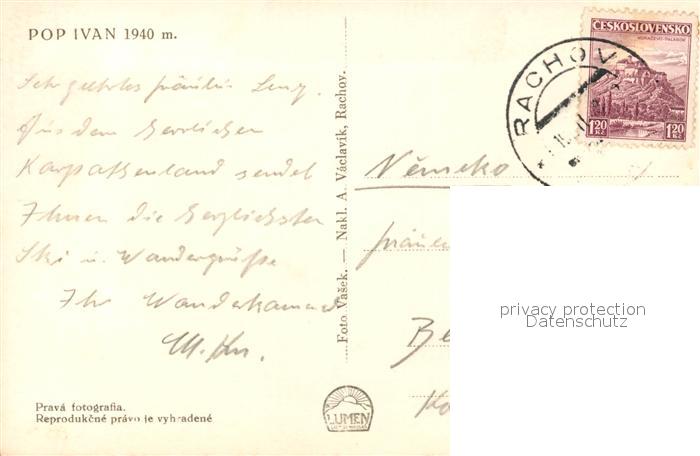 POP IVAN 1940 m.
Sehr geehrtes Fräulein Leny.
Aus dem herrlichen
Karpathenland sendet
Ihnen die herzlichsten
Ski u. Wandergrüße
Ihr Wanderkamerad
Foto Vašek. — Nakl. A. Václavík, Rachov.
ČESKOSLOVENSKO
MUKAČEVO-PALANOK
1.20 Kč 1.20 Kč
RACHOV
Německo
Fräule
Be
privacy protection
Datenschutz
Pravá fotografia.
Reprodukčné právo je vyhradené
LUMEN